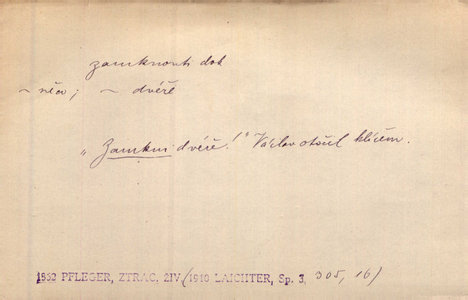 zamknouti dok
~ něco; ~ dvéře
„Zamkni dvéře!“ Václav otočil klíčem.
1862 PFLEGER, ZTRAC. ŽIV (1910 LAICHTER, Sp. 3, 305, 16)